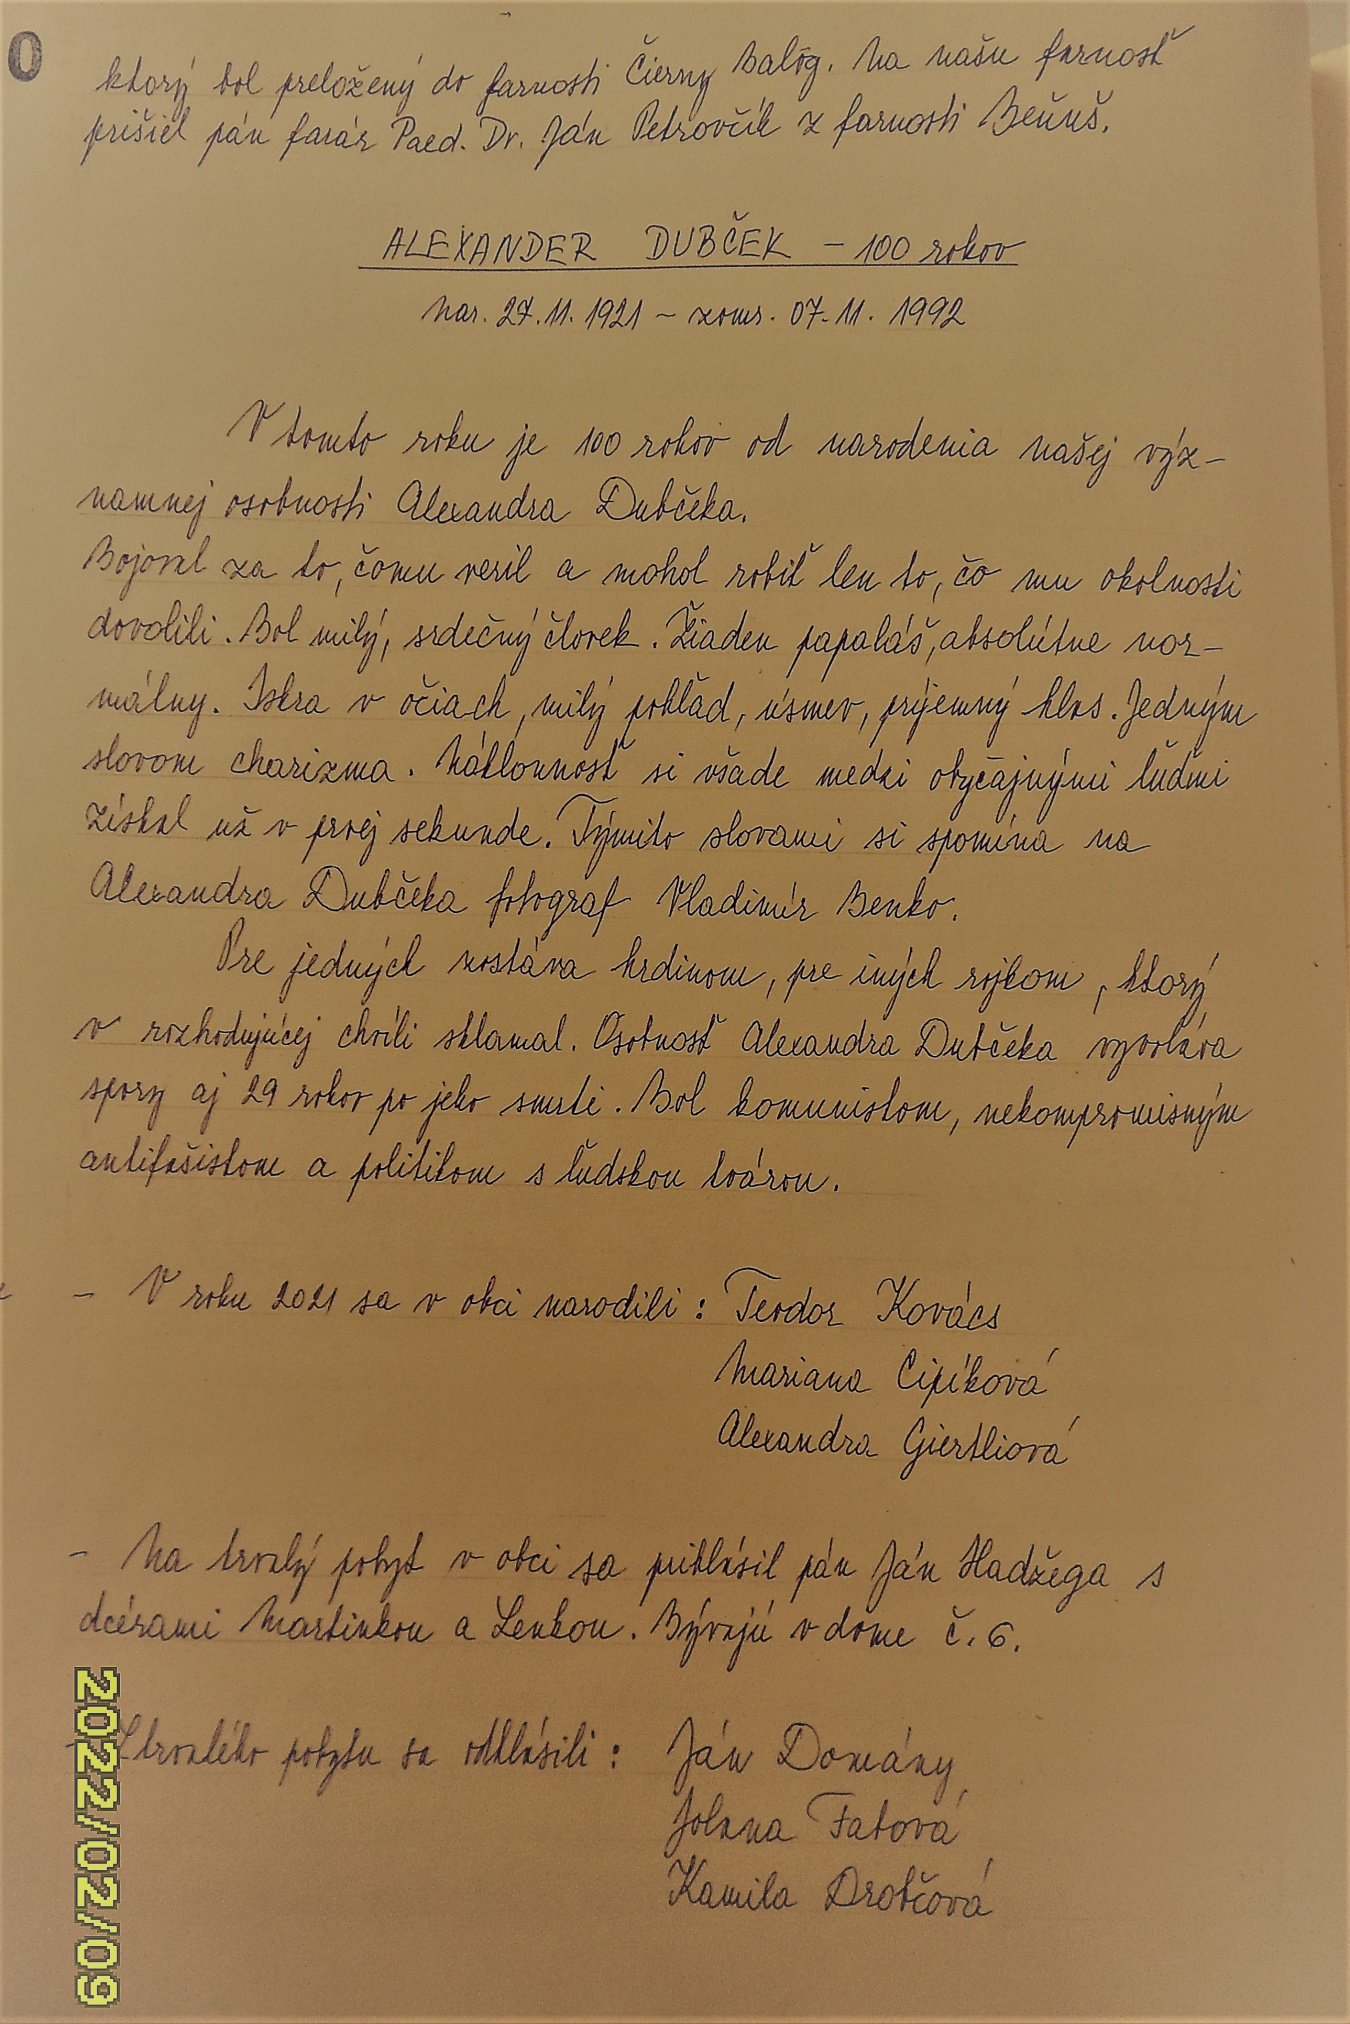 0
ktorý bol preložený do farnosti Čierny Balog. Na našu farnosť
prišiel pán farár Paed. Dr. Ján Petrovčík z farnosti Beňuš.
ALEXANDER DUBČEK - 100 rokov
nar. 27.11.1921 - zomr. 07.11.1992
V tomto roku je 100 rokov od narodenia našej výz-
namnej osobnosti Alexandra Dubčeka.
Bojoval za to, čomu veril a mohol robiť len to, čo mu okolnosti
dovolili. Bol milý, srdečný človek. Žiaden papaláš, absolútne nor-
málny. Iskra v očiach, milý pohľad, úsmev, príjemný hlas. Jedným
slovom charizma. Náklonnosť si všade medzi obyčajnými ľuďmi
získal už v prvej sekunde. Týmito slovami si spomína na
Alexandra Dubčeka fotograf Vladimír Benko.
Pre jedných zostáva hrdinom, pre iných rojkom, ktorý
v rozhodujúcej chvíli sklamal. Osobnosť Alexandra Dubčeka vyvoláva
spory aj 29 rokov po jeho smrti. Bol komunistom, nekompromisným
antifašistom a politikom s ľudskou tvárou.
- V roku 2021 sa v obci narodili: Teodor Kovács
Mariana Cipíková
Alexandra Giertliová
- Na trvalý pobyt v obci sa prihlásil pán Ján Hadžega s
dcérami Martinkou a Lenkou. Bývajú v dome č. 6.
- Z trvalého pobytu sa odhlásili: Ján Domány
Jolana Fatová
Kamila Drobčová
2022/02/09